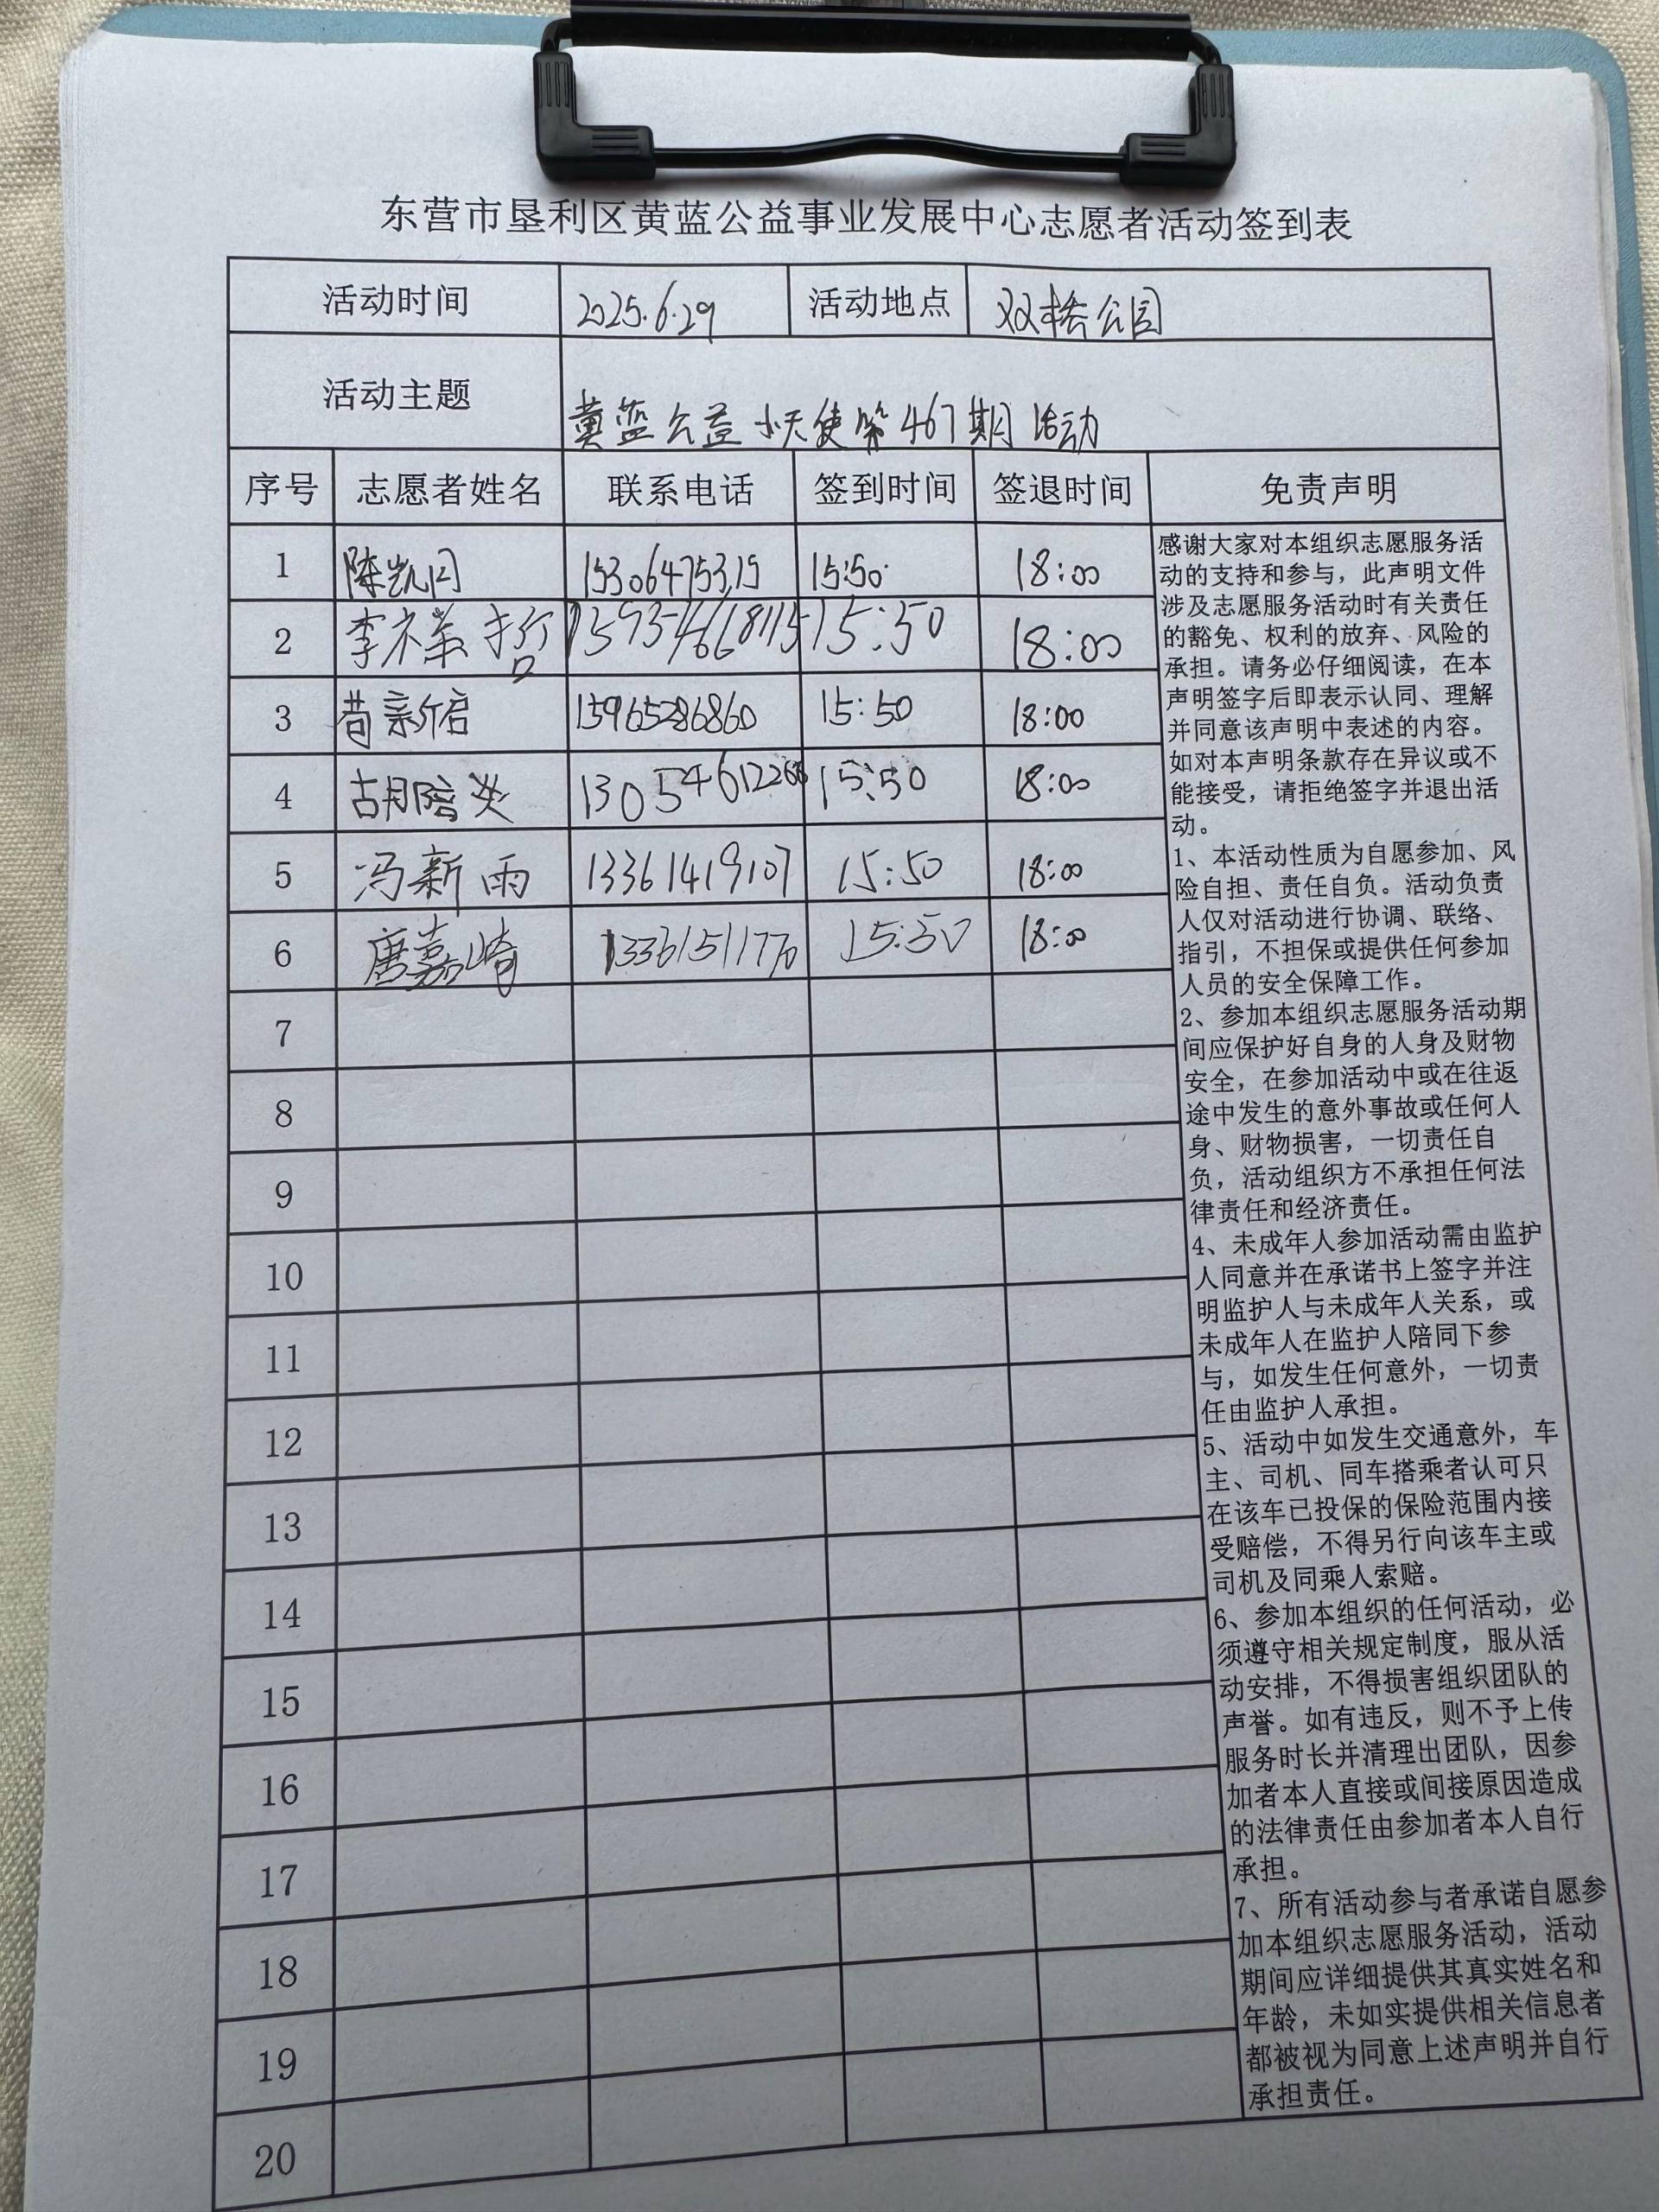 东营市垦利区黄蓝公益事业发展中心志愿者活动签到表
活动时间 2025.6.29 活动地点 双桥公园
活动主题 黄蓝公益小天使第467期活动
序号 志愿者姓名 联系电话 签到时间 签退时间 免责声明
1 陈凯 15306475315 15:50 18:00
2 李 哲 15:50 18:00
3 苟新启 15965286860 15:50 18:00
4 胡陪炎 15:50 18:00
5 冯新雨 13361419107 15:50 18:00
6 唐嘉崎 13361511770 15:50 18:00
7
8
9
10
11
12
13
14
15
16
17
18
19
20
感谢大家对本组织志愿服务活
动的支持和参与，此声明文件
涉及志愿服务活动时有关责任
的豁免、权利的放弃、风险的
承担。请务必仔细阅读，在本
声明签字后即表示认同、理解
并同意该声明中表述的内容。
如对本声明条款存在异议或不
能接受，请拒绝签字并退出活
动。
1、本活动性质为自愿参加、风
险自担、责任自负。活动负责
人仅对活动进行协调、联络、
指引，不担保或提供任何参加
人员的安全保障工作。
2、参加本组织志愿服务活动期
间应保护好自身的人身及财物
安全，在参加活动中或在往返
途中发生的意外事故或任何人
身、财物损害，一切责任自
负，活动组织方不承担任何法
律责任和经济责任。
4、未成年人参加活动需由监护
人同意并在承诺书上签字并注
明监护人与未成年人关系，或
未成年人在监护人陪同下参
与，如发生任何意外，一切责
任由监护人承担。
5、活动中如发生交通意外，车
主、司机、同车搭乘者认可只
在该车已投保的保险范围内接
受赔偿，不得另行向该车主或
司机及同乘人索赔。
6、参加本组织的任何活动，必
须遵守相关规定制度，服从活
动安排，不得损害组织团队的
声誉。如有违反，则不予上传
服务时长并清理出团队，因参
加者本人直接或间接原因造成
的法律责任由参加者本人自行
承担。
7、所有活动参与者承诺自愿参
加本组织志愿服务活动，活动
期间应详细提供其真实姓名和
年龄，未如实提供相关信息者
都被视为同意上述声明并自行
承担责任。